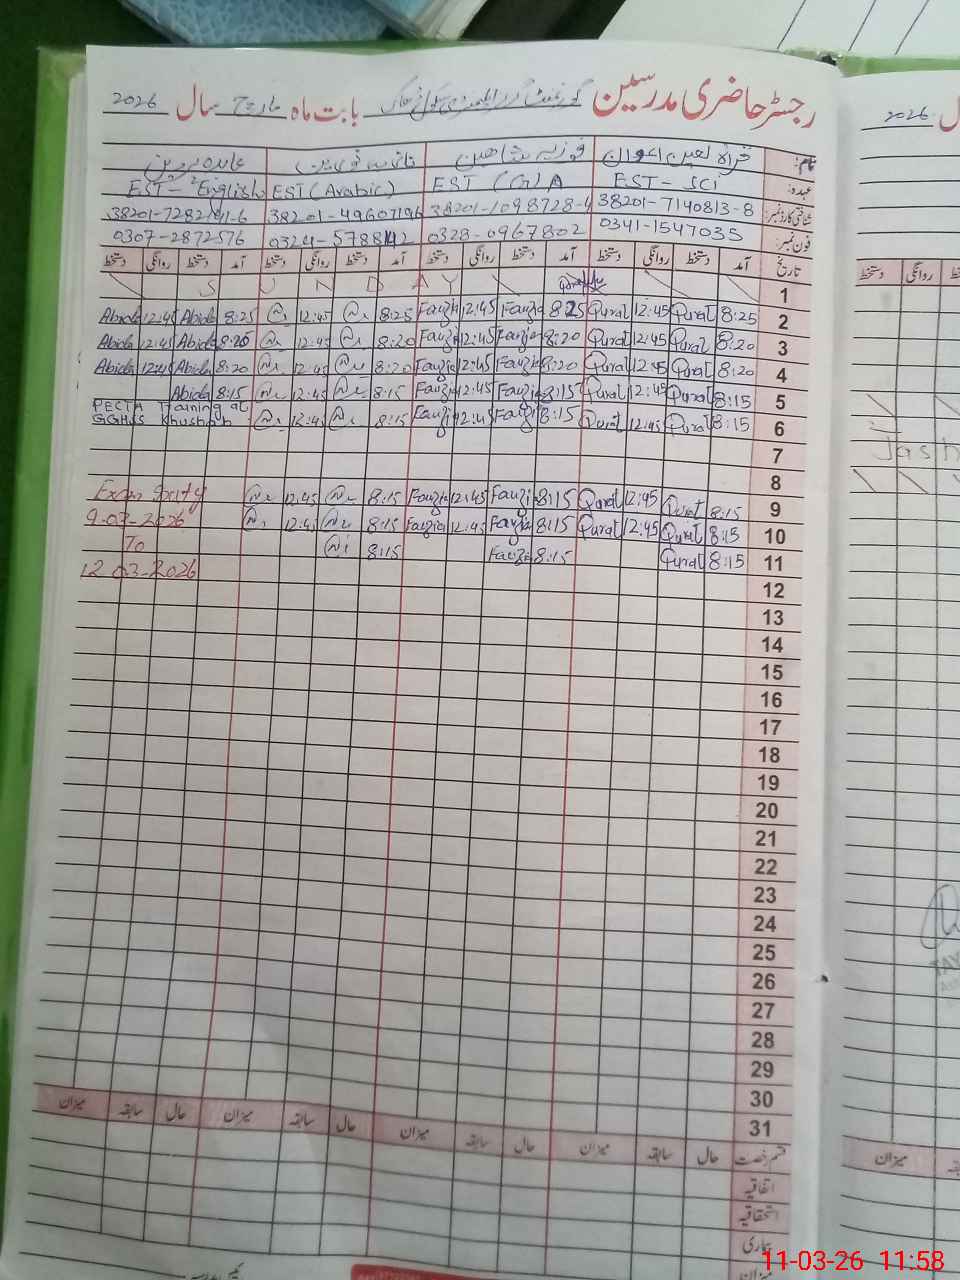 رجسٹر حاضری مدرسین گورنمنٹ گرلز ایلیمنٹری سکول بابت ماہ مارچ سال 2026
نام: قرۃ العین اعوان فوزیہ شاہین عابدہ پروین
عہدہ: EST - SCI EST (G) A EST (Arabic) EST - English
شناختی کارڈ نمبر: 38201-7140813-8 38201-1098728-4 38201-4960719 38201-7282
فون نمبر: 0341-1547035 0328-0967802 0324-5788142 0307-2872576
تاریخ آمد دستخط روانگی دستخط آمد دستخط روانگی دستخط آمد دستخط روانگی دستخط آمد دستخط روانگی دستخط
1 S U N D A Y
2 8:25 Qurat 12:45 Qurat 8:25 Fauzia 12:45 Fauzia 8:25 12:45 8:25 Abida 12:45 Abida
3 8:20 Qurat 12:45 Qurat 8:20 Fauzia 12:45 Fauzia 8:20 12:45 8:20 Abida 12:45 Abida
4 8:20 Qurat 12:45 Qurat 8:20 Fauzia 12:45 Fauzia 8:20 12:45 8:20 Abida 12:45 Abida
5 8:15 Qurat 12:45 Qurat 8:15 Fauzia 12:45 Fauzia 8:15 12:45 8:15 Abida
6 8:15 Qurat 12:45 Qurat 8:15 Fauzia 12:45 Fauzia 8:15 12:45 PECTA Training at
GGHSS Khushab
7
8
9 8:15 Qurat 12:45 Qurat 8:15 Fauzia 12:45 Fauzia 8:15 12:45 Exam Duty
10 8:15 Qurat 12:45 Qurat 8:15 Fauzia 12:45 Fauzia 8:15 12:45 9-03-2026
11 8:15 Qurat 8:15 Fauzia 8:15 To
12 12-03-2026
13
14
15
16
17
18
19
20
21
22
23
24
25
26
27
28
29
30
31
قسم رخصت حال سابقہ میزان حال سابقہ میزان حال سابقہ میزان حال سابقہ میزان
اتفاقیہ
استحقاقیہ
بیماری
میزان
2026
دستخط روانگی دستخط
Jash
میزان
11-03-26 11:58